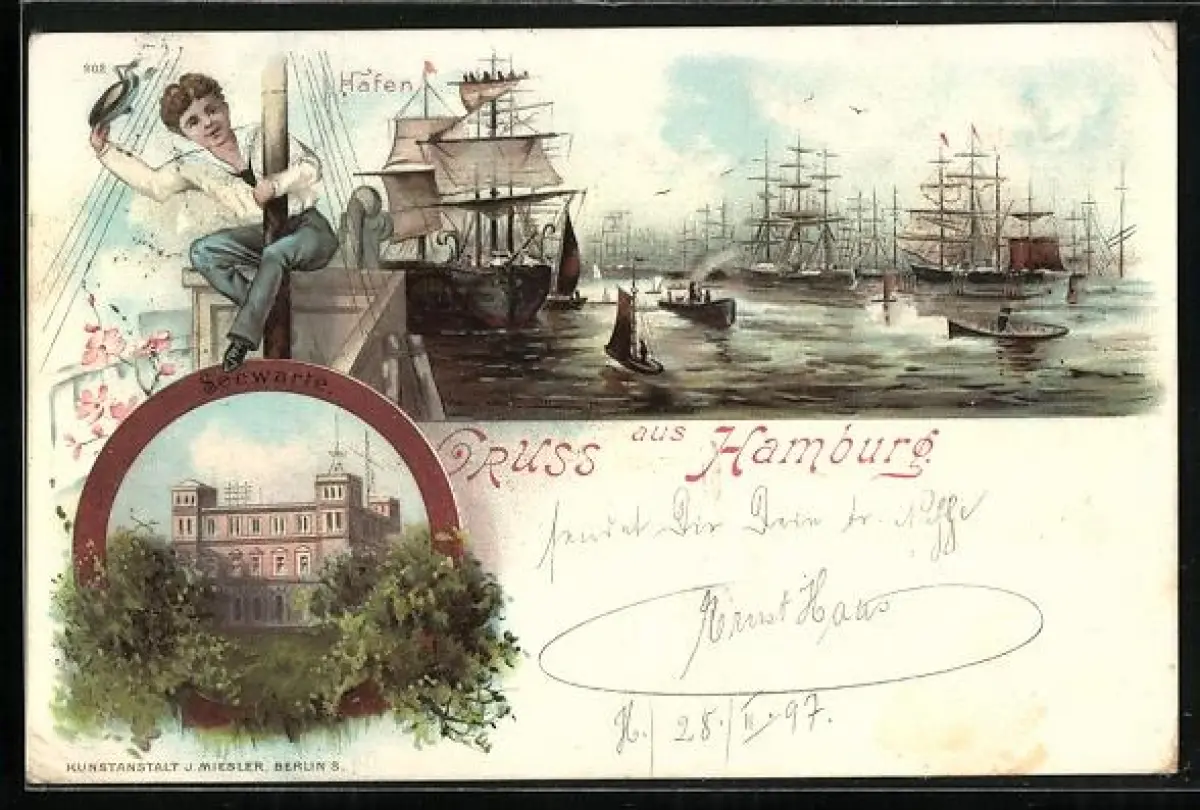 202
Hafen.
Seewarte.
GRUSS aus Hamburg.
sendet Dir Dein tr. Neffe
Ernst Haas
H./ 28./II. 97.
KUNSTANSTALT J. MIESLER, BERLIN S.